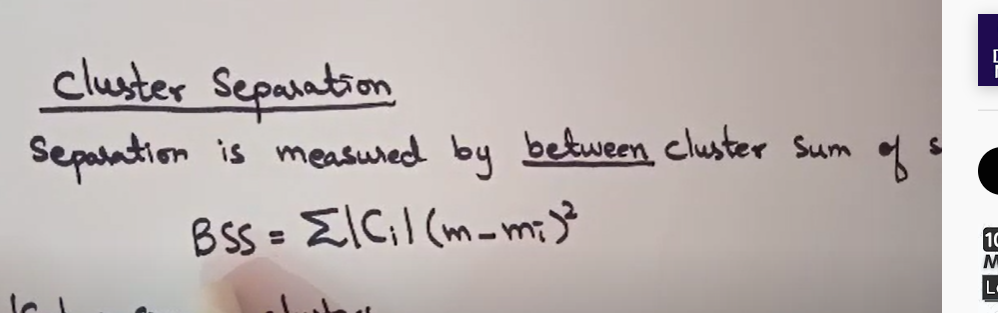 Cluster Separation
Separation is measured by between cluster sum of s
BSS = Σ|Cᵢ| (m - mᵢ)²